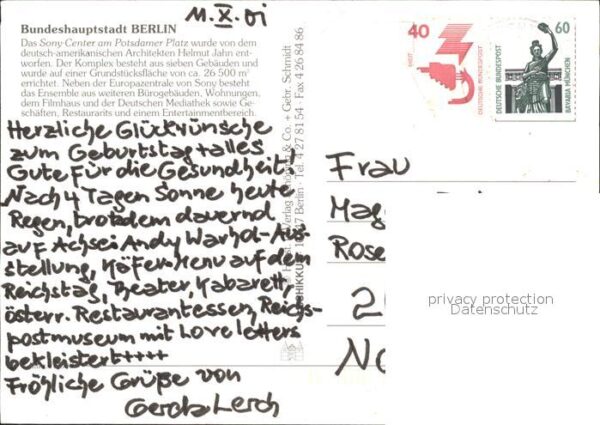 11.X.01
Bundeshauptstadt BERLIN
Das Sony Center am Potsdamer Platz wurde von dem
deutsch-amerikanischen Architekten Helmut Jahn ent-
worfen. Der Komplex besteht aus sieben Gebäuden und
wurde auf einer Grundstücksfläche von ca. 26 500 m²
errichtet. Neben der Europazentrale von Sony besteht
das Ensemble aus weiteren Bürogebäuden, Wohnungen,
dem Filmhaus und der Deutschen Mediathek sowie Ge-
schäften, Restaurants und einem Entertainmentbereich.
Herzliche Glückwünsche
zum Geburtstag + alles
Gute für die Gesundheit!
Nach 4 Tagen Sonne heute
Regen, trotzdem dauernd
auf Achse: Andy Warhol-Aus-
stellung, auf dem
Reichstag, Theater, Kabarett,
österr. Restaurantessen, Reichs-
postmuseum mit Love letters
bekleistert++++
Fröhliche Grüße von
Gerda Lerch
Verlag & Co. + Gebr. Schmidt
Berlin · Tel. 4 27 81 54 · Fax 4 26 84 86
40
DEUTSCHE BUNDESPOST
60
DEUTSCHE BUNDESPOST
BAVARIA MÜNCHEN
Frau
Mag
Rose
2
privacy protection
Datenschutz